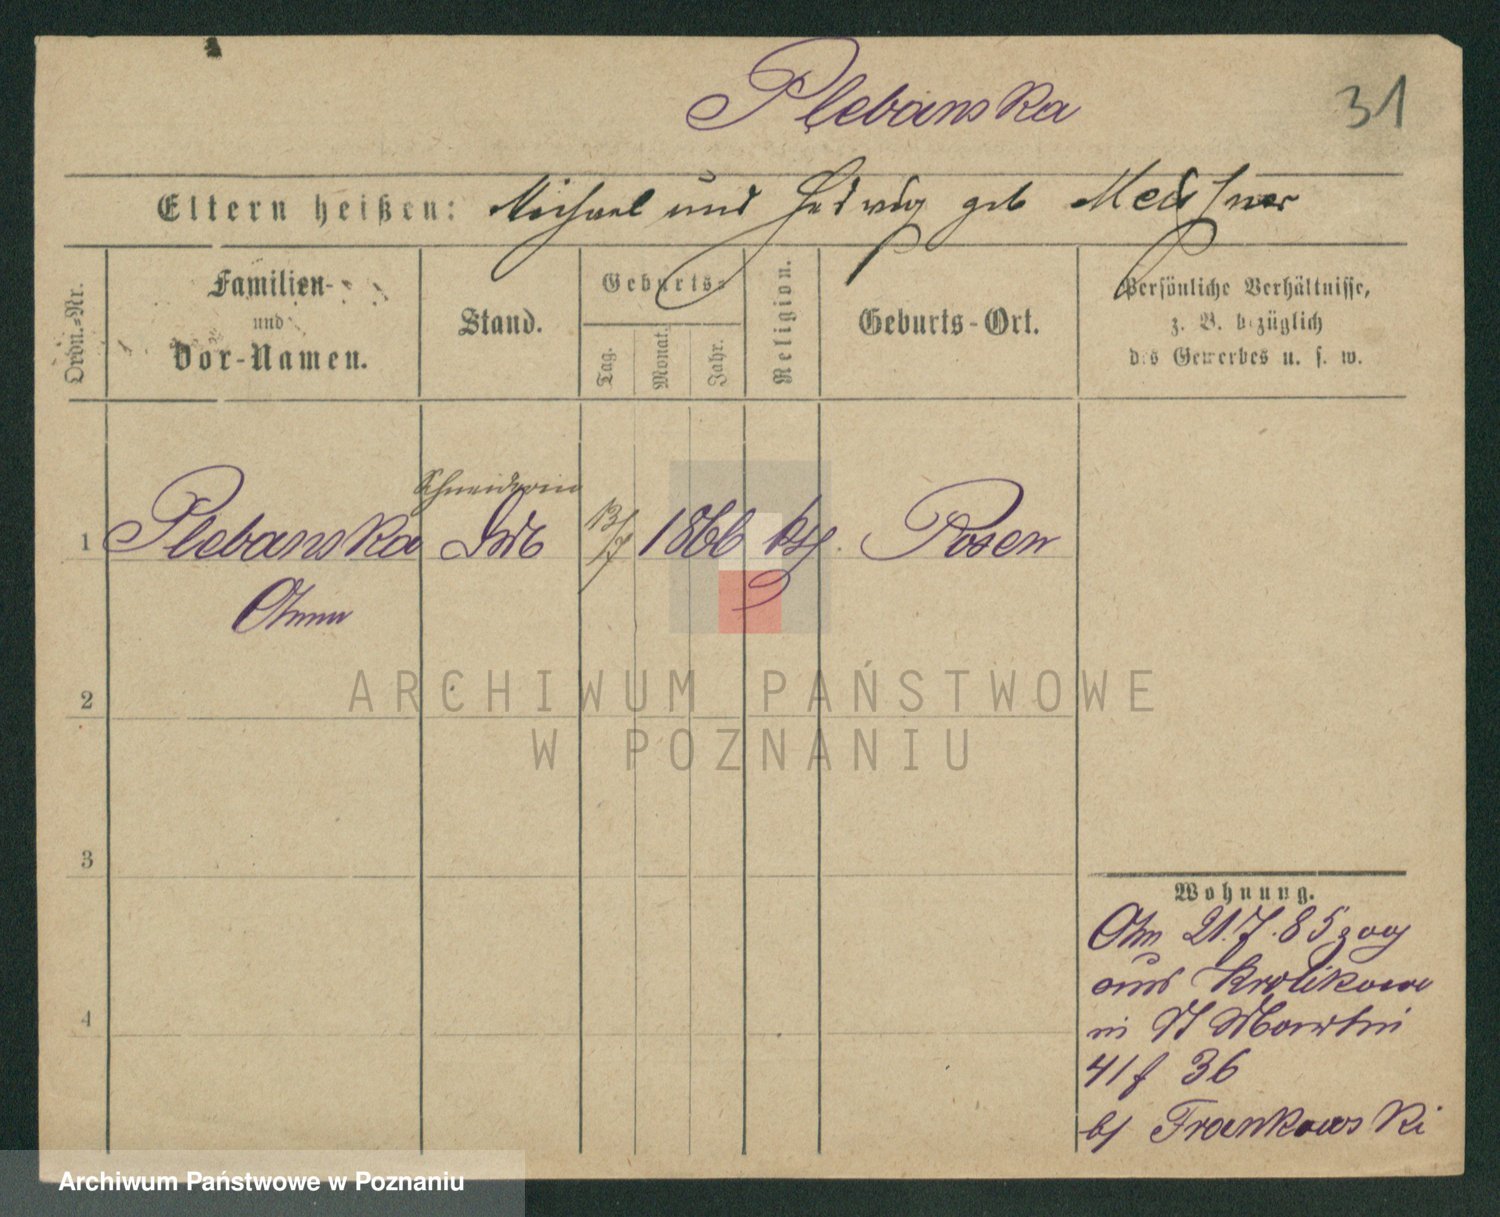 Plebanska
31
Eltern heißen: Michael und Hedwig geb
Ordn.-Nr.
Familien- und Vor-Namen.
Stand.
Geburts-
Tag.
Monat.
Jahr.
Religion.
Geburts-Ort.
Persönliche Verhältnisse,
z. B. bezüglich
des Gewerbes u. s. w.
Schneiderin
1 Plebanska 13/7 1866 kth. Posen
Anna
2
3
4
Wohnung.
Am 21.7.85 zog
aus Krolikowo
in St Martin
41 f 36
b/ Frankowski
ARCHIWUM PAŃSTWOWE
W POZNANIU
Archiwum Państwowe w Poznaniu